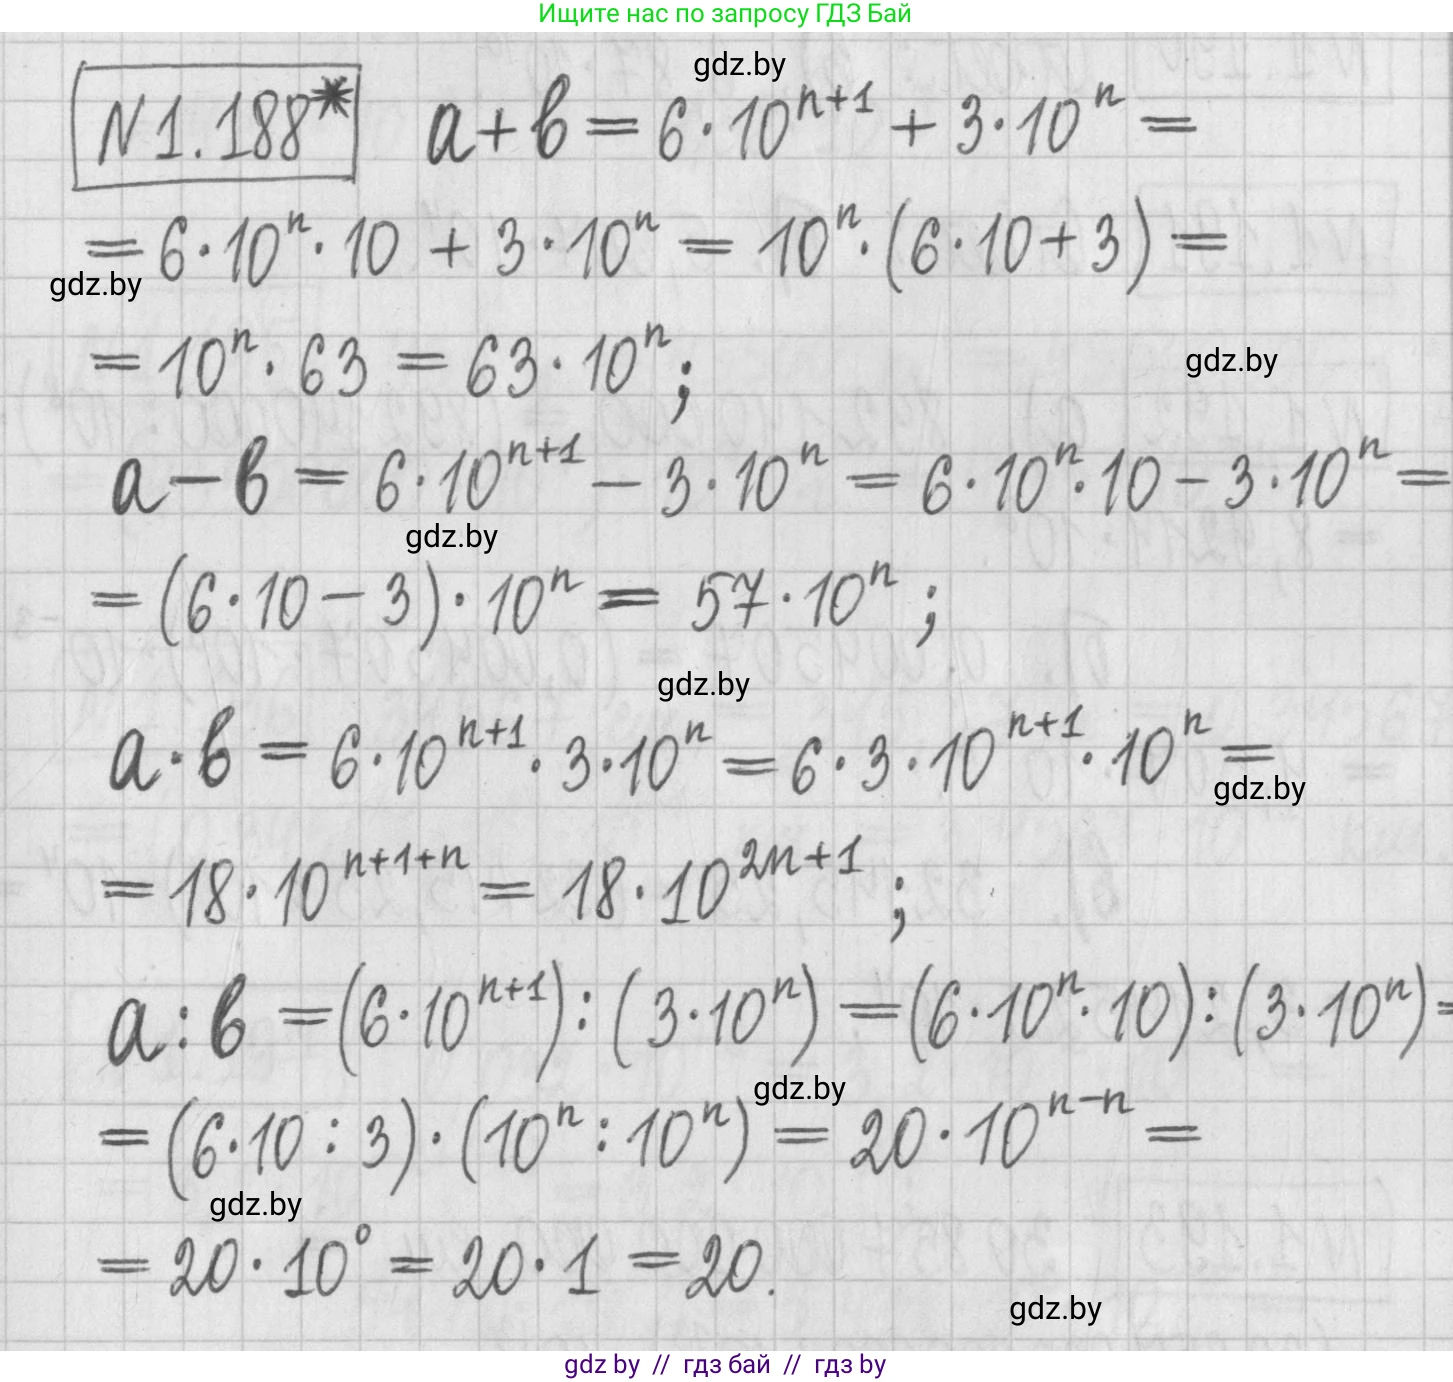 Ищите нас по запросу ГДЗ Бай
gdz.by
N1.188* a+b = 6·10ⁿ⁺¹ + 3·10ⁿ =
= 6·10ⁿ·10 + 3·10ⁿ = 10ⁿ·(6·10+3) =
gdz.by
= 10ⁿ·63 = 63·10ⁿ;
gdz.by
a-b = 6·10ⁿ⁺¹ - 3·10ⁿ = 6·10ⁿ·10 - 3·10ⁿ =
gdz.by
= (6·10-3)·10ⁿ = 57·10ⁿ;
gdz.by
a·b = 6·10ⁿ⁺¹·3·10ⁿ = 6·3·10ⁿ⁺¹·10ⁿ =
gdz.by
= 18·10ⁿ⁺¹⁺ⁿ = 18·10²ⁿ⁺¹;
a:b = (6·10ⁿ⁺¹):(3·10ⁿ) = (6·10ⁿ·10):(3·10ⁿ) =
gdz.by
= (6·10:3)·(10ⁿ:10ⁿ) = 20·10ⁿ⁻ⁿ =
gdz.by
= 20·10⁰ = 20·1 = 20.
gdz.by
gdz by // гдз бай // гдз by